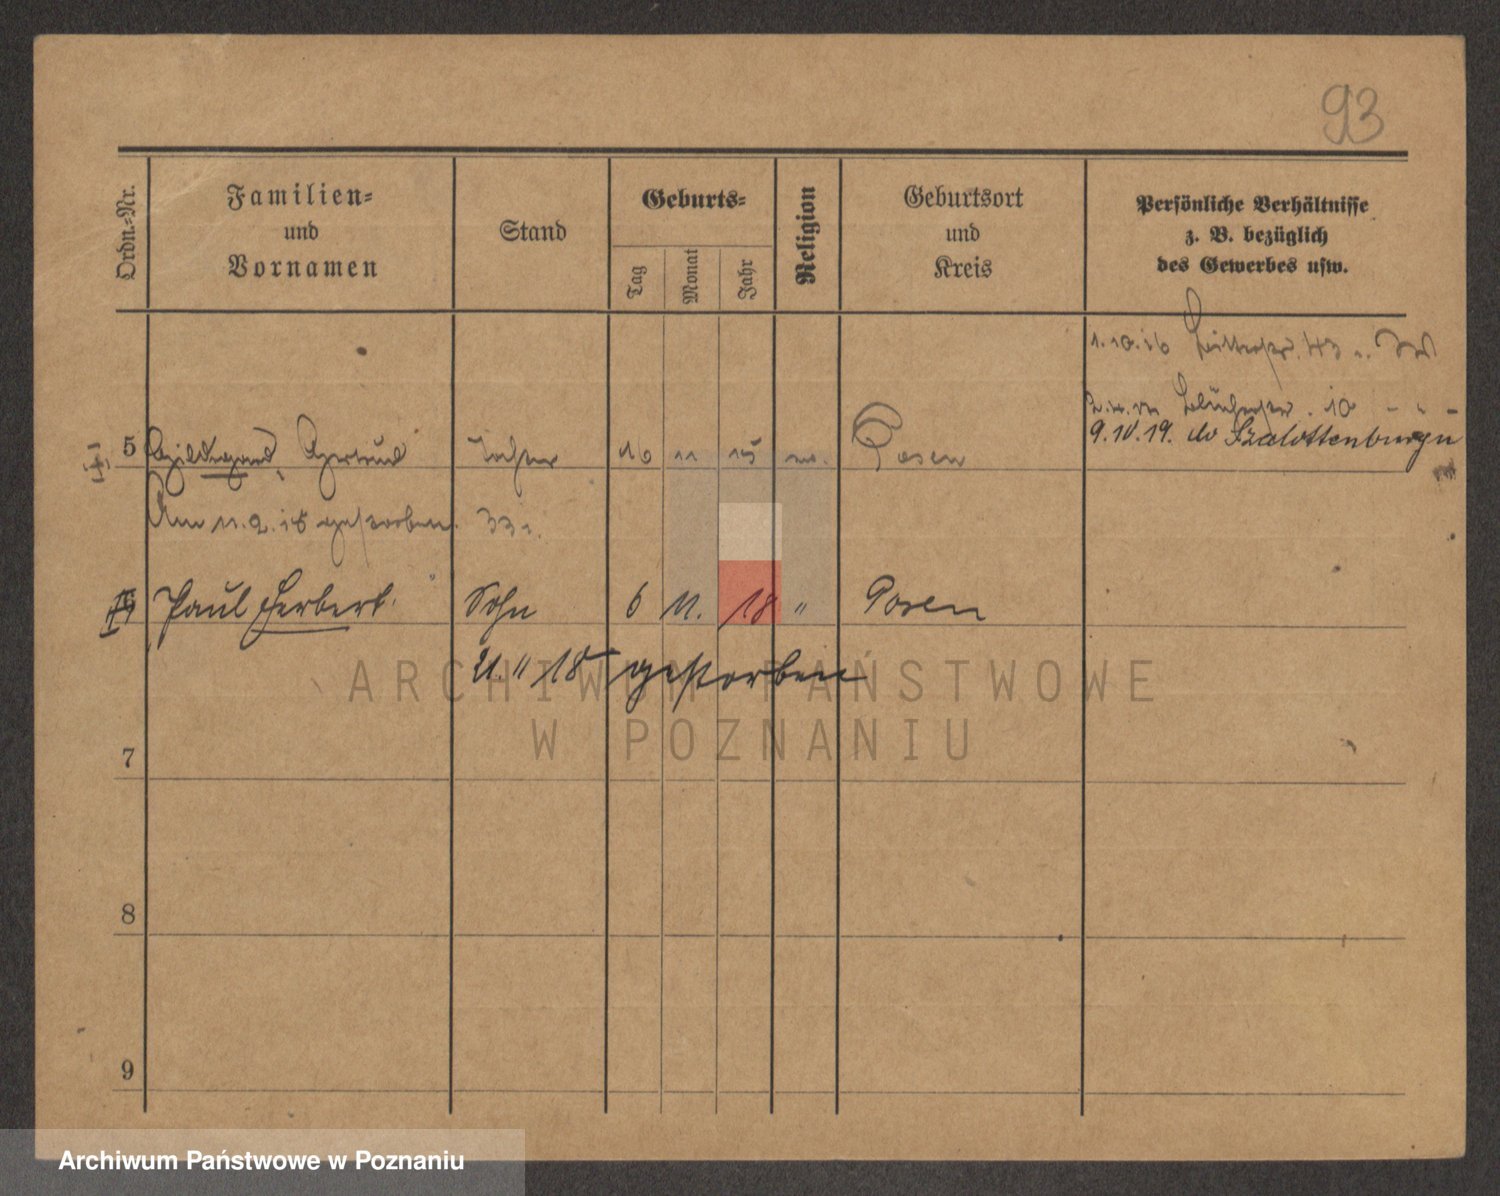 93
Ordn.-Nr.
Familien-
und
Vornamen
Stand
Geburts-
Tag
Monat
Jahr
Religion
Geburtsort
und
Kreis
Persönliche Verhältnisse
z. B. bezüglich
des Gewerbes usw.
1.10.16 43
10
9.10.19. do Szalottenburgu
5 Hildegard, Gertrud Tochter 16 11 15 Posen
Am 11.2.18 gestorben.
Paul Herbert Sohn 6 11. 18 " Posen
21. 11 18 gestorben
7
8
9
ARCHIWUM PAŃSTWOWE
W POZNANIU
Archiwum Państwowe w Poznaniu